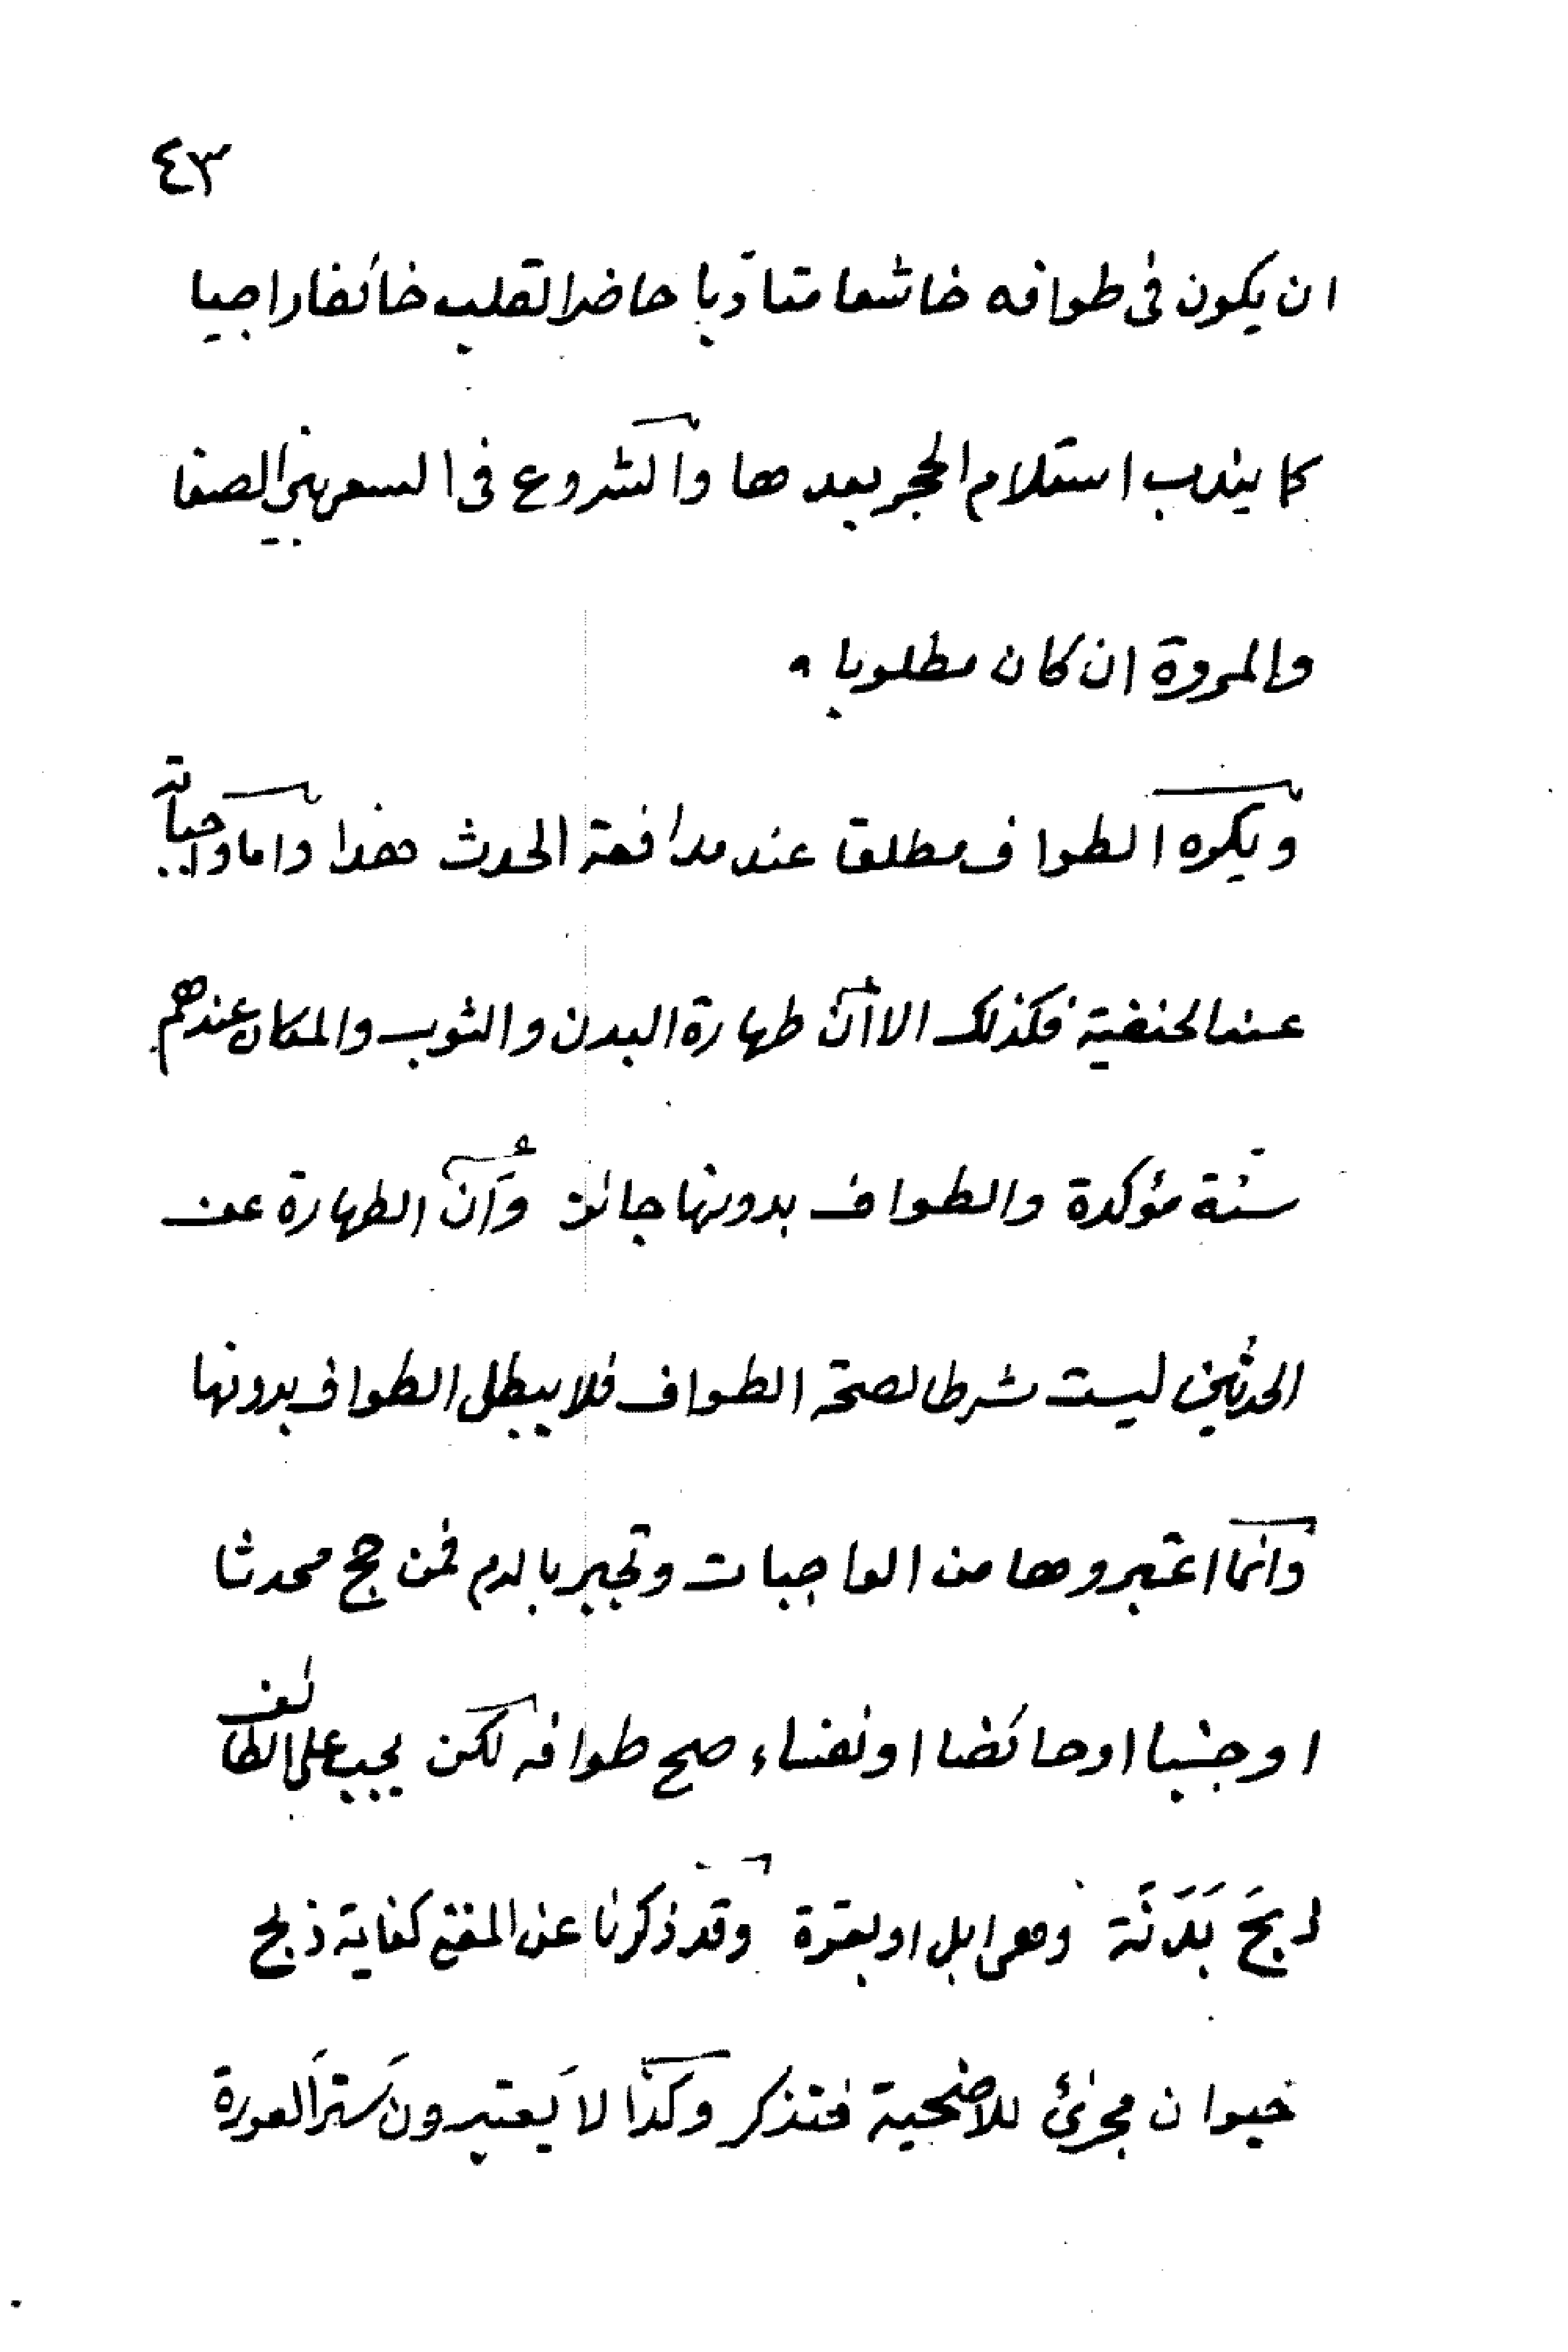 ٤٣
ان يكون فى طوافه خاشعا متأدّبا حاضر القلب خائفا راجيا
كما يندب استلام الحجر بعدها والشروع فى السعى بين الصفا
والمروة ان كان مطلوبا ،
ويكره الطواف مطلقا عند مدافعة الحدث هذا واما واجباته
عند الحنفية فكذلك الا أنّ طهارة البدن والثوب والمكان عندهم
سنّة مؤكدة والطواف بدونها جائز وَأنّ الطهارة عن
الحدثين ليست شرطا لصحة الطواف فلا يبطل الطواف بدونها
وانما اعتبروها من الواجبات وتجبر بالدم فمن حج محدثا
او جنبا او حائضا او نفساء صح طوافه لكن يجب على الطائف
ذبحَ بَدَنَة وهى ابل او بقرة وقد ذكرنا عن المفتى كفاية ذبح
حيوان مجزئ للاضحية فتذكر وكذا لا يَعتبرونَ سترَ العورة